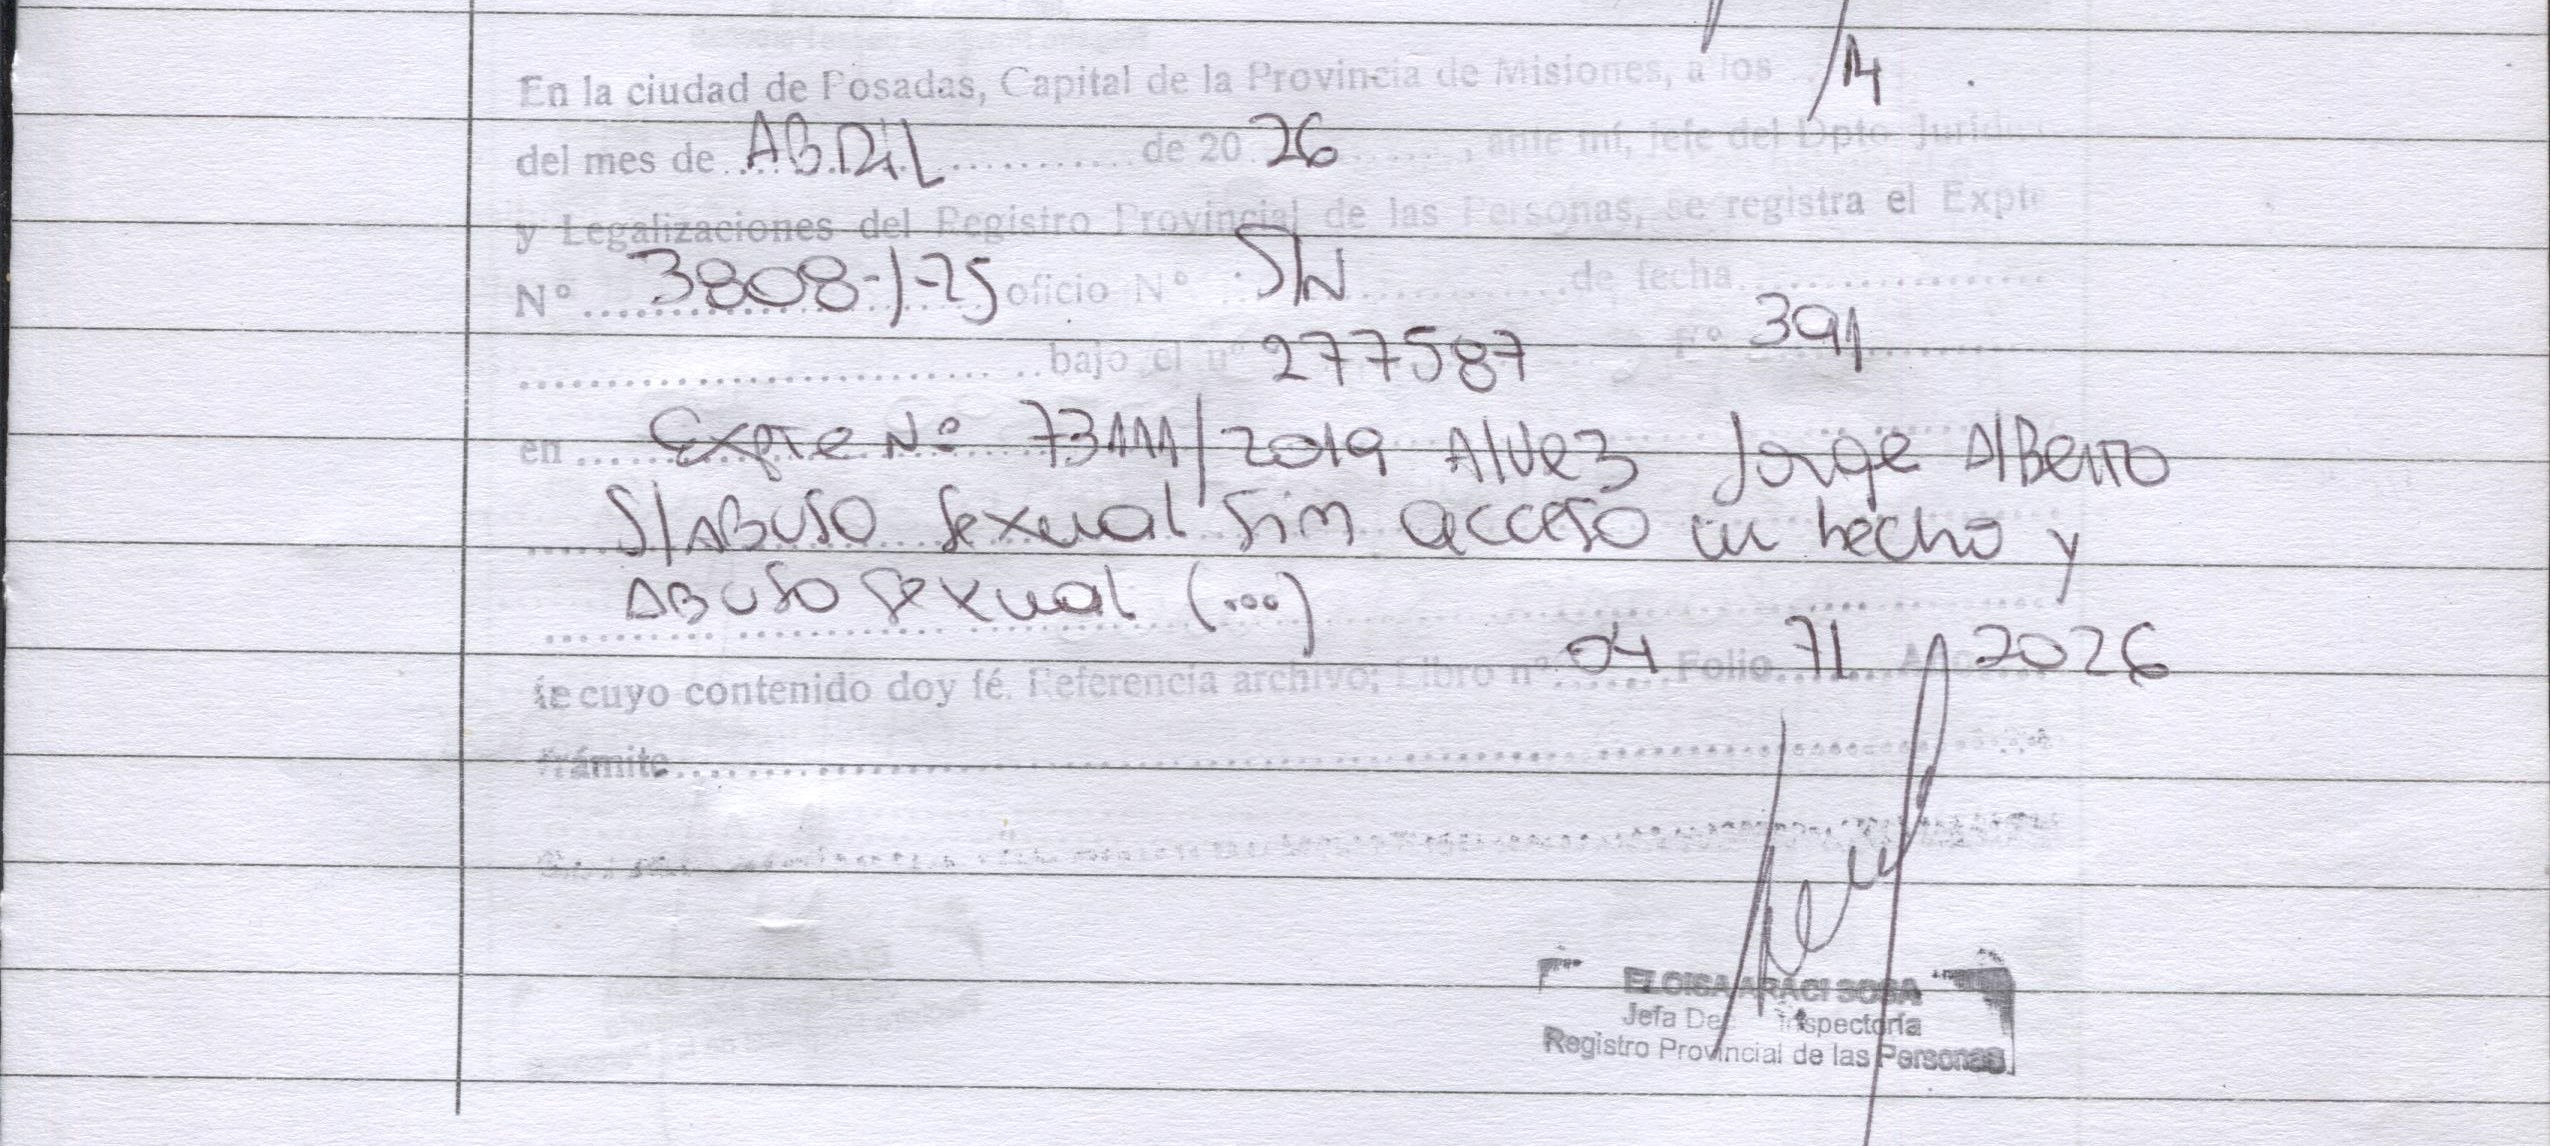 En la ciudad de Posadas, Capital de la Provincia de Misiones, a los 14
del mes de ABRiL de 20 26, ante mí, jefe del Dpto Jurídi
y Legalizaciones del Registro Provincial de las Personas, se registra el Expte
Nº 3808-1-25 oficio Nº S/N de fecha
bajo el nº 277587 Fº 391
en Expte Nº 73111/2019 Alvez Jorge Alberto
S/ABUSO Sexual Sim acceso un hecho y
ABUSO Sexual (...)
de cuyo contenido doy fé. Referencia archivo; Libro nº 04 Folio 71 A 2026
trámite
ELOISA ARACI SOSA
Jefa De Inspectoría
Registro Provincial de las Personas